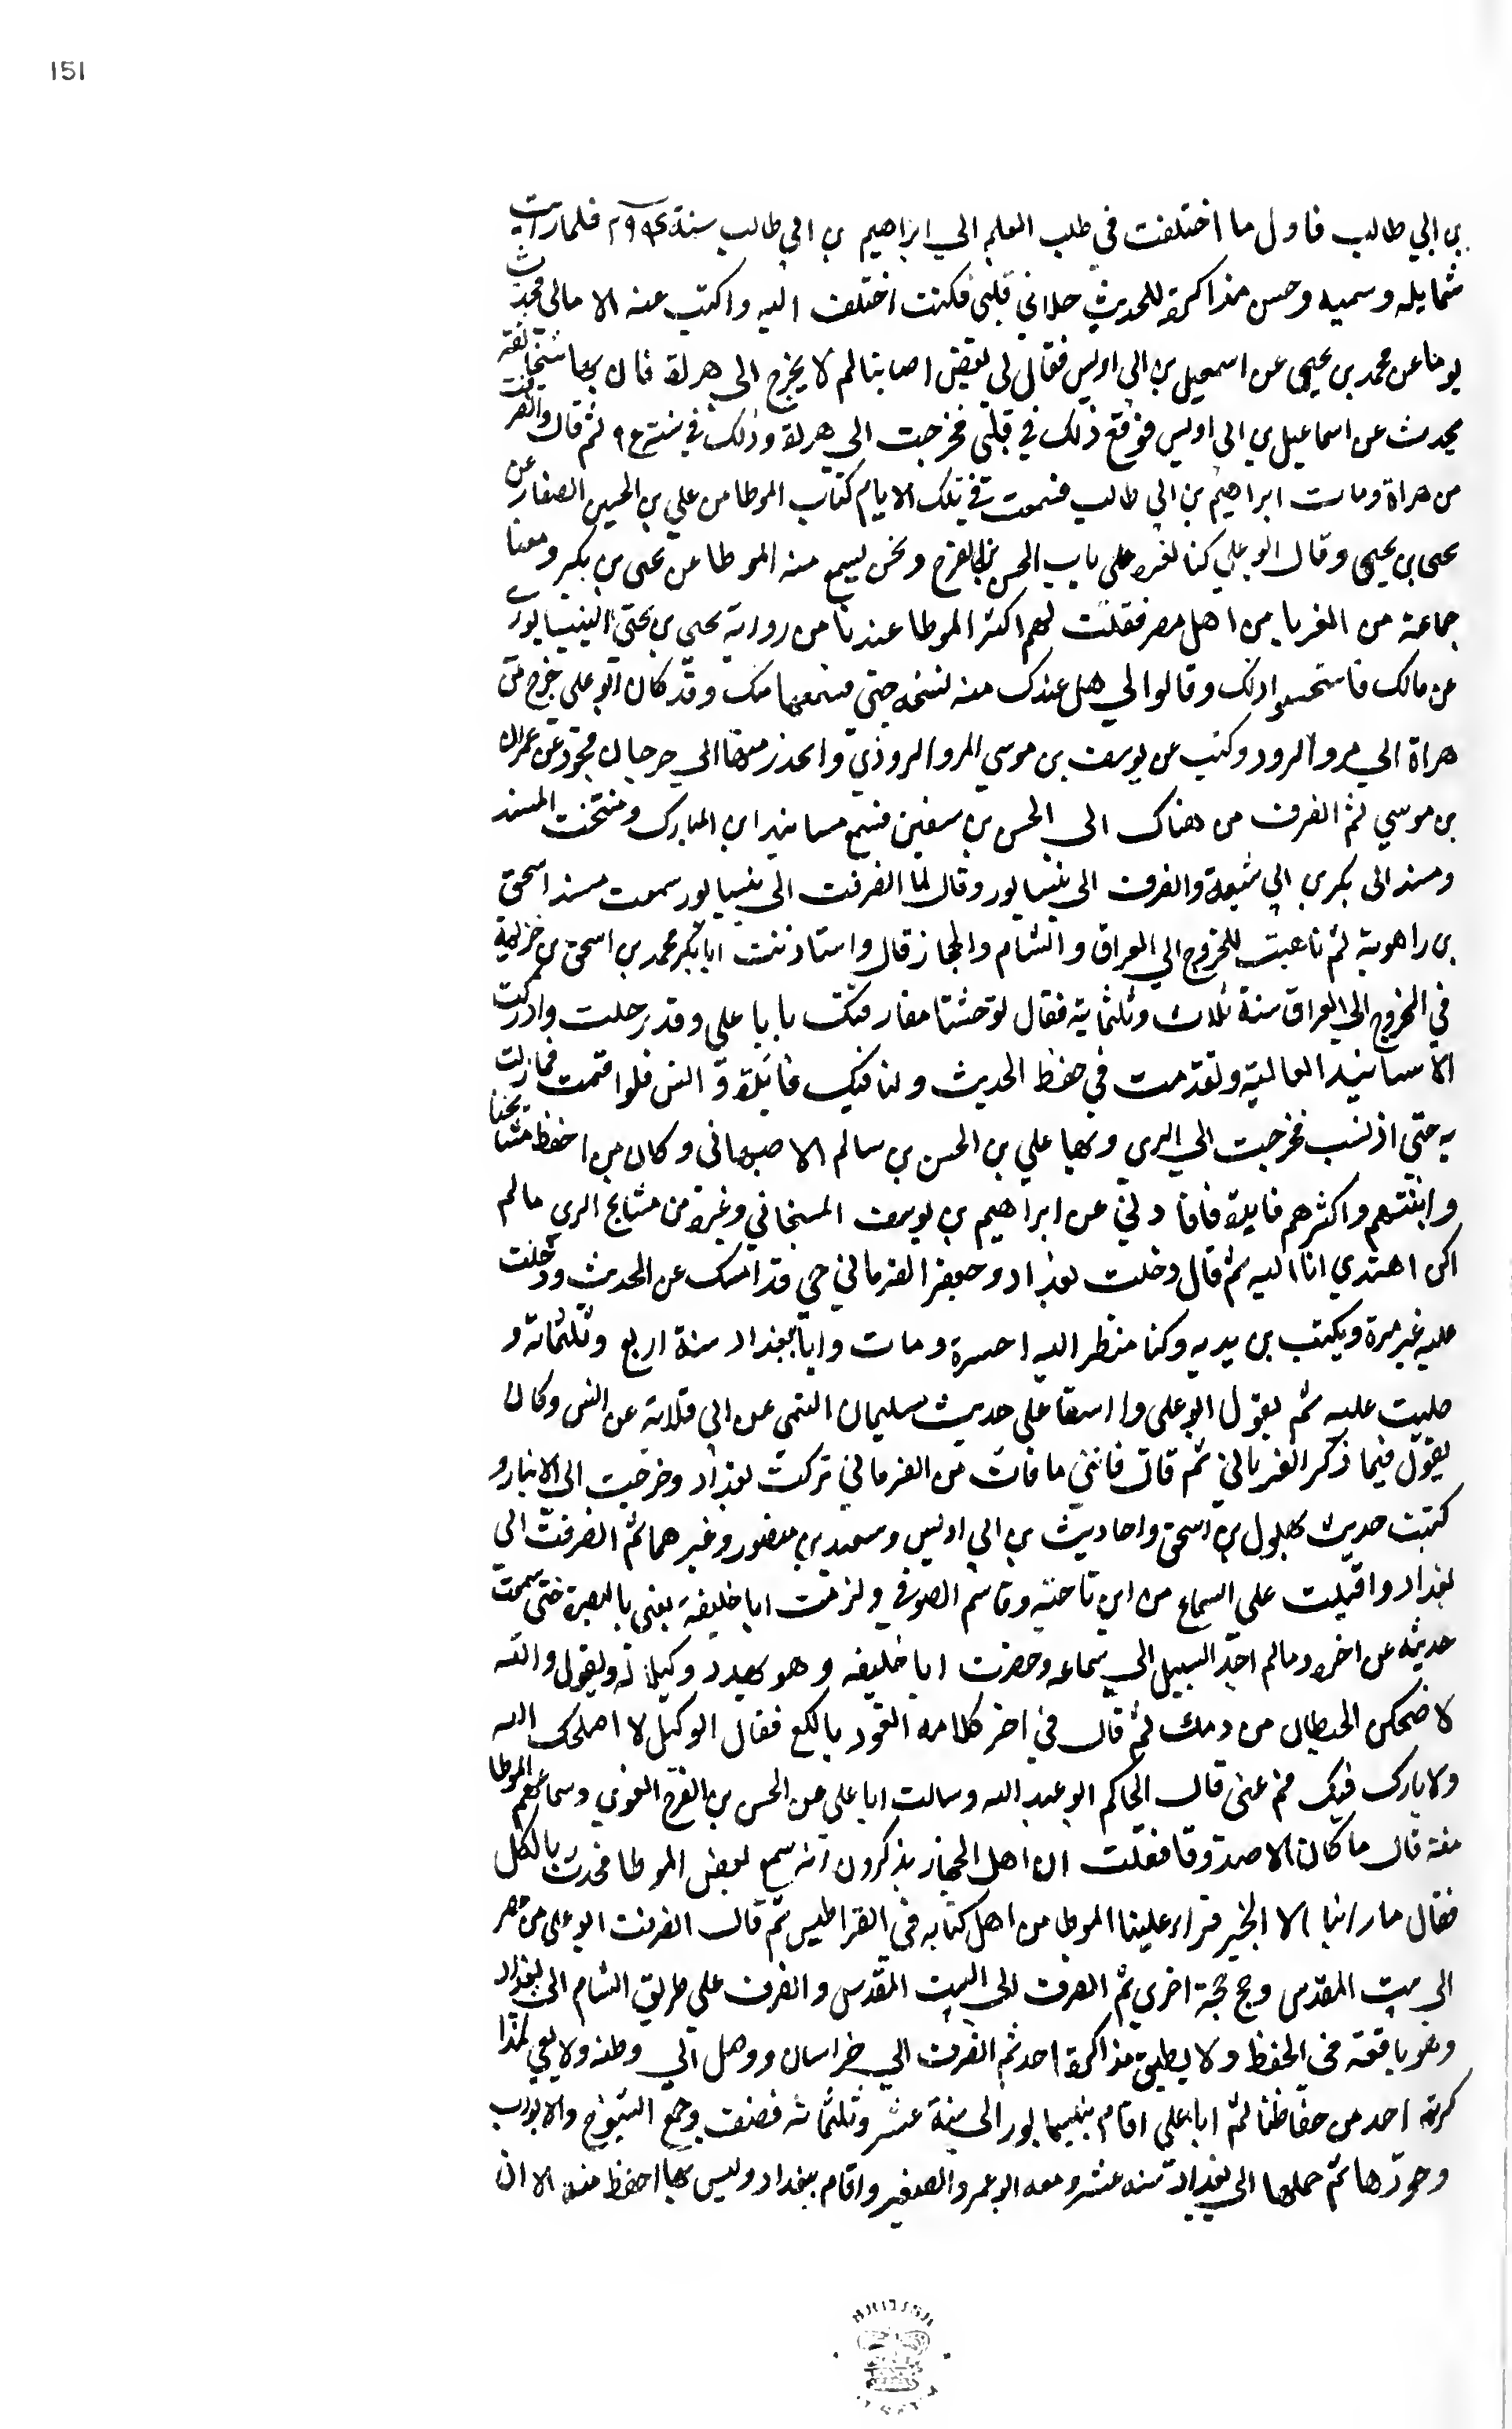 151
بن ابي طالب فاول ما اختلفت في طلب العلم الي ابراهيم بن ابي طالب سنة فلما رايت
شمايله وسمته وحسن مذاكرته للحديث حلاني قلبي فكنت اختلف اليه واكتب عنه الامالي فحدث
يوما عن محمد بن يحيى عن اسمعيل بن ابي اويس فقال لي بعض اصحابنا لم لا يخرج الي هراة فان بها شيخا ثقة
يحدث عن اسماعيل بن ابي اويس فوقع ذلك في قلبي فخرجت الي هراة وذلك في سنة ثم قال وانصرفت
من هراة ومات ابراهيم بن ابي طالب فسمعت في تلك الايام كتاب الموطا من علي بن الحسين الصفار عن
يحيى بن يحيى وقال ابو علي كنا نقرء على باب الحسن بن الفرج ونحن نسمع منه الموطا عن يحيى بن بكير ومعنا
جماعة من الغربا من اهل مصر فقلت لهم اكثر الموطا عندنا من رواية يحيى بن يحيى النيسابوري
عن مالك فاستحسنوا ذلك وقالوا لي هل عندك منه نسخة حتى نسمعها منك وقد كان ابو علي خرج من
هراة الي مرو الرود وكتب عن يوسف بن موسي المرو الروذي وانحدر منها الي جرجان فجود عن عمران
بن موسي ثم انصرف من هناك الى الحسن بن سفين فسمع مسانيد ابن المبارك ومنتخب المسند
ومسند ابي بكر بن ابي شيبة وانصرف الى نيسابور وقال لما انصرفت الى نيسابور سمعت مسند اسحق
بن راهوية ثم تاهبت للخروج الي العراق والشام والحجاز قال واستاذنت ابا بكر محمد بن اسحق بن خزيمة
في الخروج الي العراق سنة ثلاث وثلثماية فقال توحشنا مفارقتك يا با علي وقد رحلت وادركت
الاسانيد العالية وتقدمت في حفظ الحديث ولنا فيك فائدة وانس فلو اقمت فما زلت
به حتى اذن لي فخرجت الي الري وبها علي بن الحسن بن سالم الاصبهاني وكان من احفظ مشايخنا
واثبتهم واكثرهم فايدة فافادني عن ابراهيم بن يوسف الهسنجاني وغيره من مشايخ الري ما لم
اكن اهتدي انا اليه ثم قال دخلت بغداد وجعفر الفريابي حي قد امسك عن الحديث ودخلت
عليه غير مرة ويكتب بين يديه وكنا ننظر اليه حسرة ومات وانا ببغداد سنة اربع وثلثمائة و
صليت عليه ثم يقول ابو علي وا اسفا علي حديث سليمان التيمي عن ابي قلابة عن انس وكان
يقول فيما ذكر الفريابي ثم قال فاتني ما فات من الفريابي تركت بغداد وخرجت الي الانبار و
كتبت حديث بهلول بن اسحق واحاديث بن ابي اويس وسعيد بن منصور وغيرهما ثم انصرفت الى
بغداد واقبلت علي السماع من ابن ناجية وقاسم الصوفي ولزمت ابا خليفة يعني بالبصرة حتى سمعت
حديثه عن اخره وما لم اجد السبيل الي سماعه وحضرت ابا خليفه وهو يهدد وكيلا له ويقول والله
من دمك ثم قال في اخر كلامه القود يا لكع فقال الوكيل لا اصلحك الله
ولا بارك فيك قم عني قال الحاكم ابو عبد الله وسالت ابا علي عن الحسن بن الفرج الغزي وسماعهم الموطا
منه قال ما كان الا صدوقا فقلت ان اهل الحجاز يذكرون انه سمع بعض الموطا فحدث بالكل
فقال ما راينا الا الخير قراء علينا الموطا من اصل كتابه في القراطيس ثم قال انصرفت ابو علي من مصر
الي بيت المقدس وحج حجة اخري ثم انصرف الي البيت المقدس وانصرف علي طريق الشام الى بغداد
وهو باقعة في الحفظ ولا يطيق مذاكرة احد ثم انصرف الي خراسان ووصل الي وطنه ولا يفي بمذا
كرته احد من حفاظنا ثم ابا علي اقام بنيسابور الى سنة عشر وثلثمائة فصنف وجمع الشيوخ والابواب
وجودها ثم حملها الي بغداد سنه عشر ومعه ابو عمرو الصغير واقام ببغداد وليس بها احفظ منه الا ان